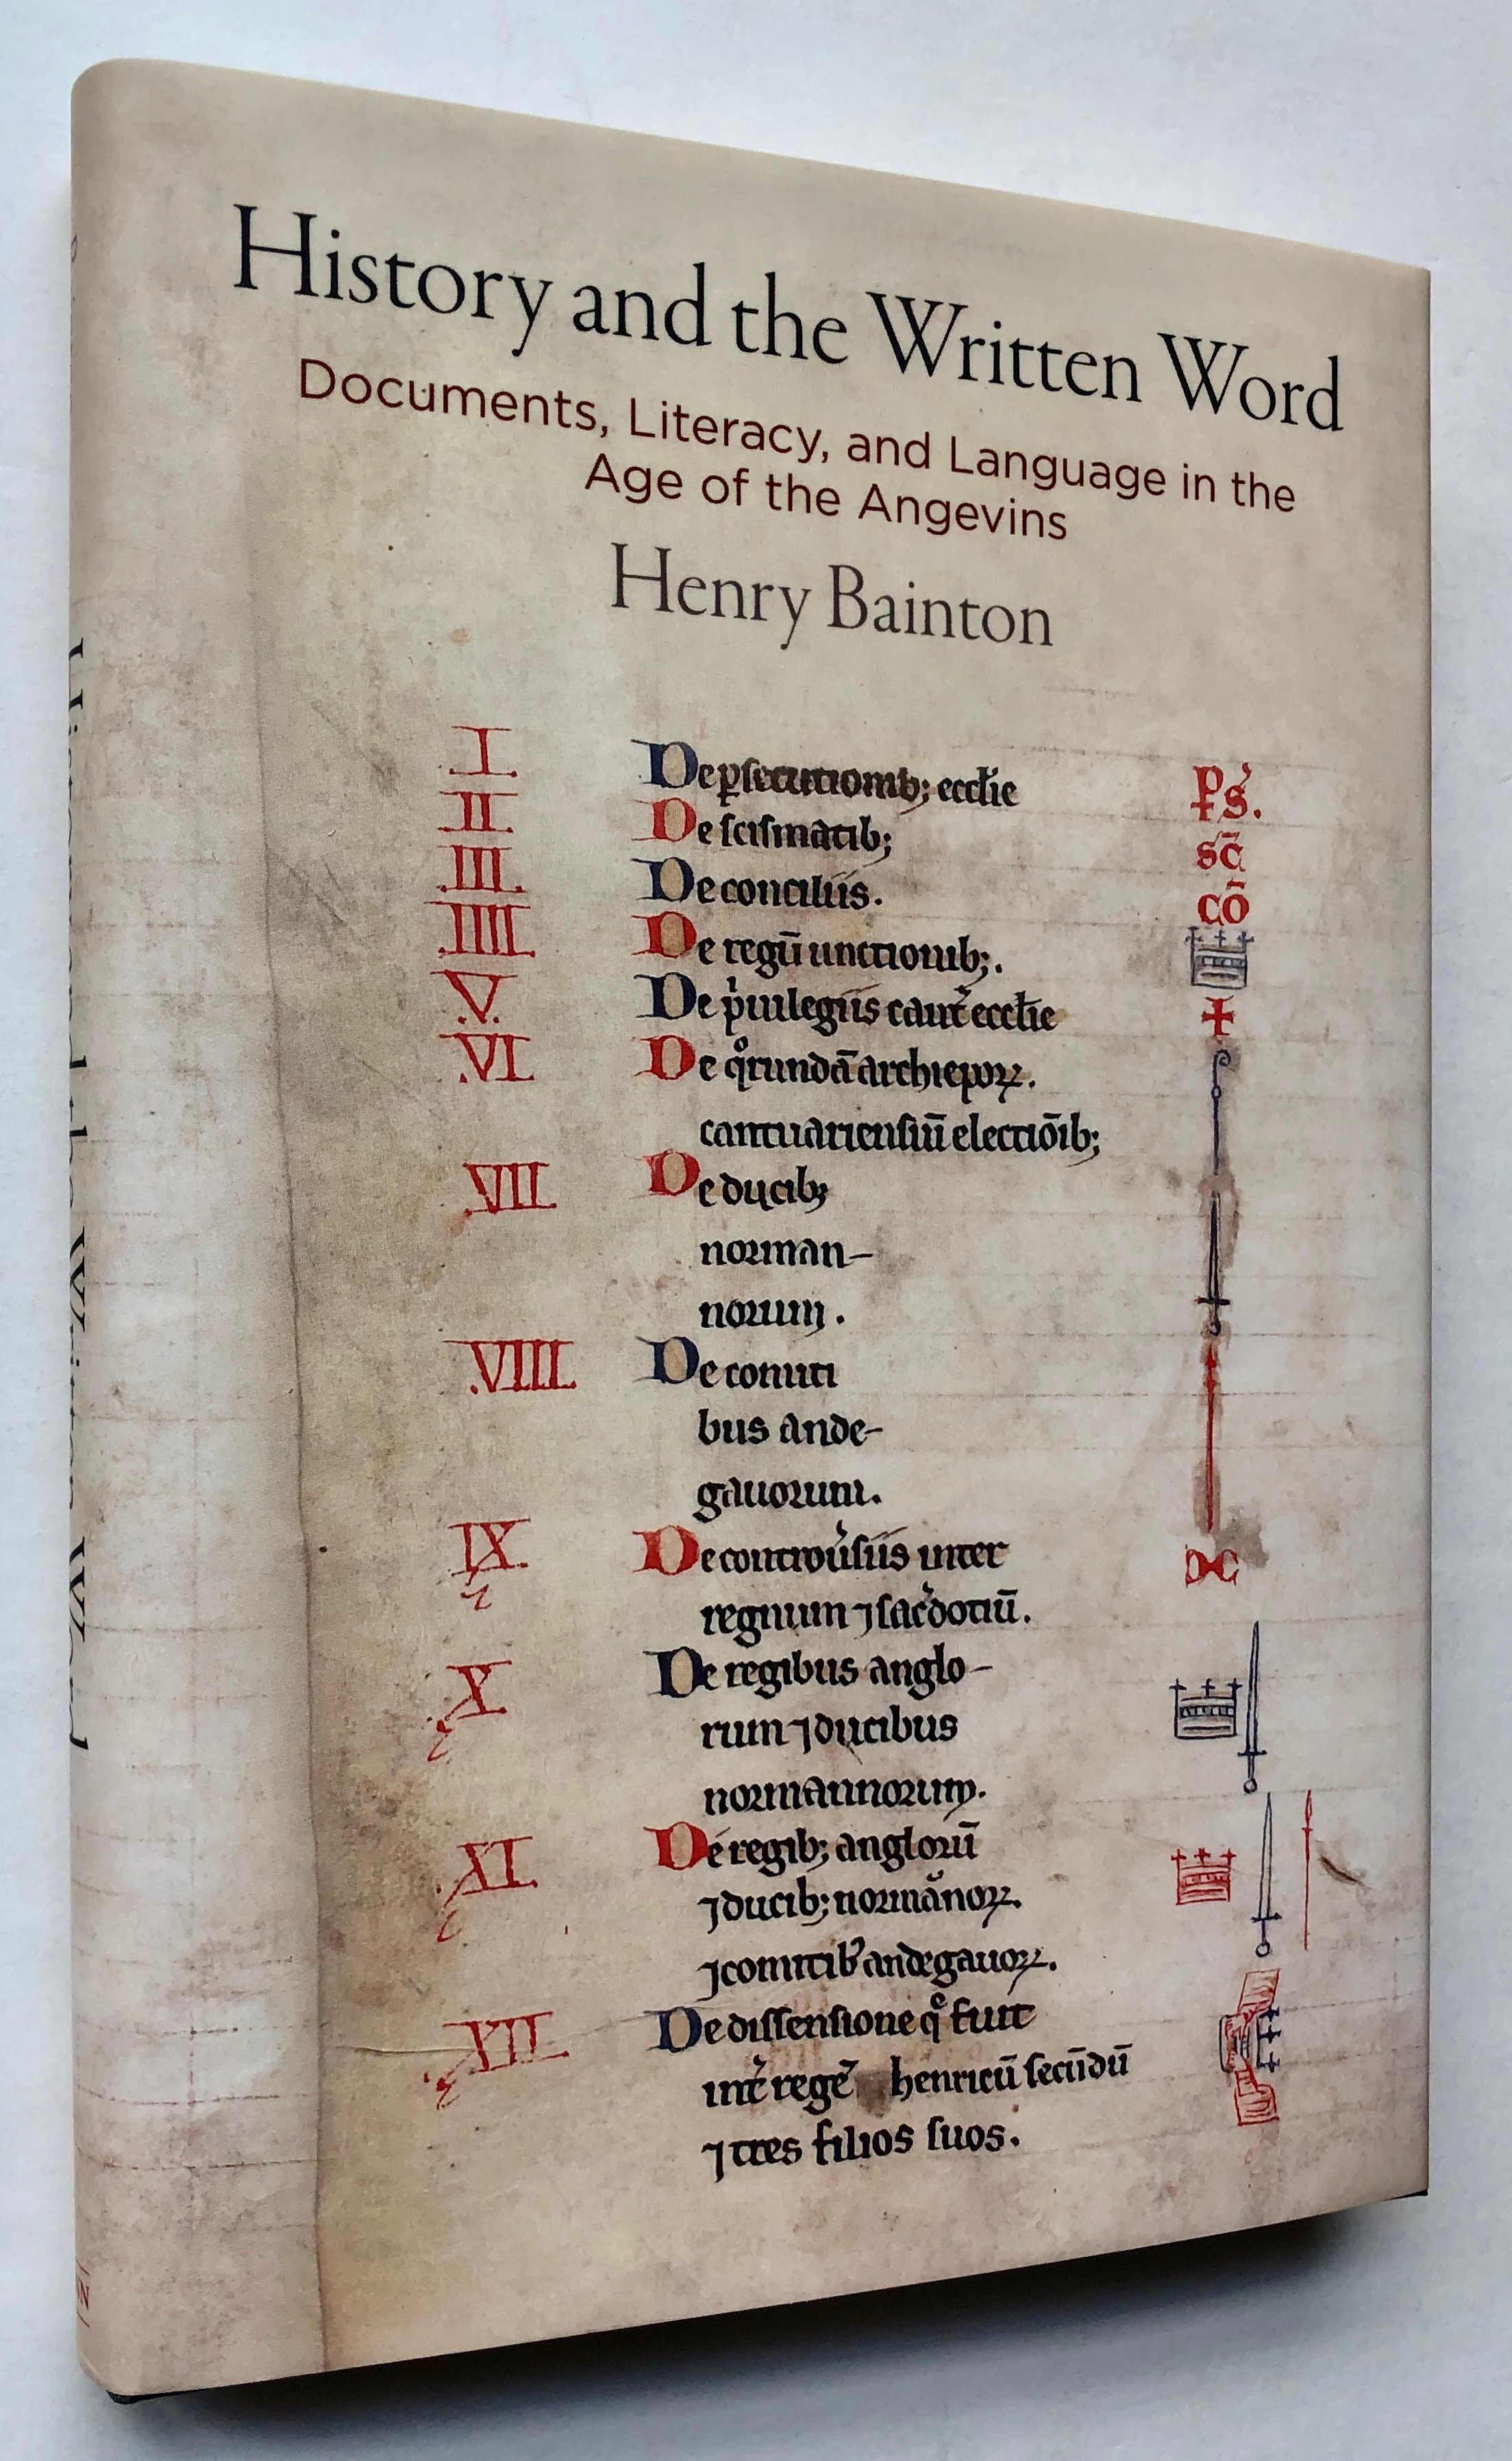 History and the Written Word
Documents, Literacy, and Language in the
Age of the Angevins
Henry Bainton
.I. De ꝑsecutionib; ecctie ps̓.
.II. De scismatib; sc̄
.III. De conciliis. cō
.IIII. De regū unctionib;.
.V. De p̓iuilegiis cant̓ ecctie +
.VI De qͦrundā archiepoꝝ.
cantuariensiū electiōib;
.VII. De ducib;
norman-
norum.
.VIII. De comiti
bus ande-
gauorum.
.IX. De contiou̓siis inter
regnum ⁊ sac̓dotiū.
.X. De regibus anglo-
rum ⁊ ducibus
normannorum.
.XI. De regib; anglorū
⁊ ducib; normānoꝝ.
⁊ comitib᷒ andegauoꝝ.
.XII. De dissensione qͤ fuit
int̓ regē henricū secūdū
⁊ tres filios suos.
History and the Written Word